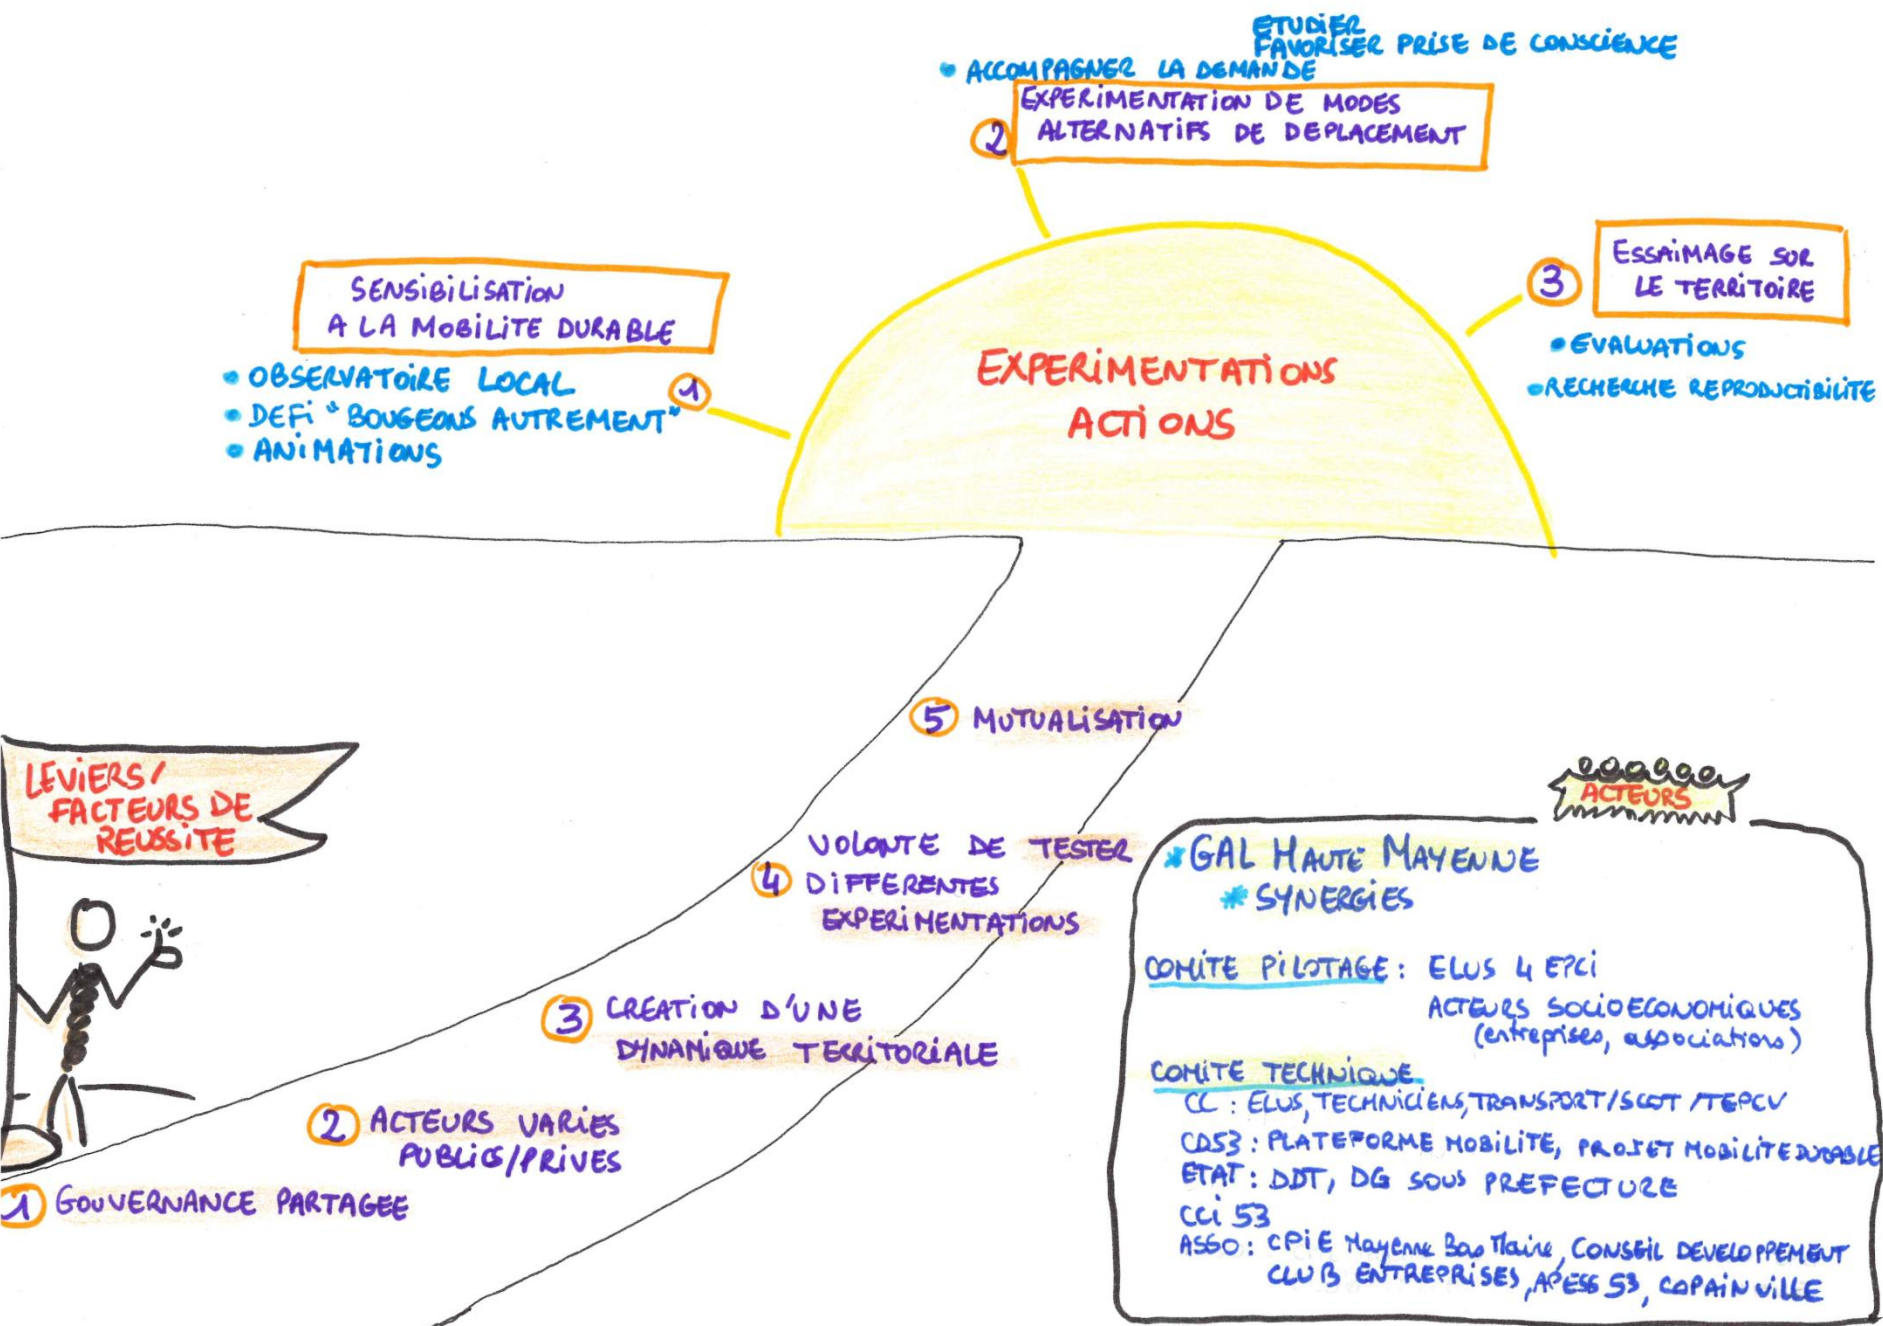 ETUDIER
FAVORISER PRISE DE CONSCIENCE
• ACCOMPAGNER LA DEMANDE
2 EXPERIMENTATION DE MODES
ALTERNATIFS DE DEPLACEMENT
3 ESSAIMAGE SUR
LE TERRITOIRE
• EVALUATIONS
• RECHERCHE REPRODUCTIBILITE
SENSIBILISATION
A LA MOBILITE DURABLE
1
• OBSERVATOIRE LOCAL
• DEFI "BOUGEONS AUTREMENT"
• ANIMATIONS
EXPERIMENTATIONS
ACTIONS
LEVIERS/
FACTEURS DE
REUSSITE
5 MUTUALISATION
4 VOLONTE DE TESTER
DIFFERENTES
EXPERIMENTATIONS
3 CREATION D'UNE
DYNAMIQUE TERRITORIALE
2 ACTEURS VARIES
PUBLICS/PRIVES
1 GOUVERNANCE PARTAGEE
ACTEURS
* GAL HAUTE MAYENNE
* SYNERGIES
COMITE PILOTAGE : ELUS 4 EPCI
ACTEURS SOCIOECONOMIQUES
(entreprises, associations)
COMITE TECHNIQUE
CC : ELUS, TECHNICIENS, TRANSPORT/SCOT/TEPCV
CD53 : PLATEFORME MOBILITE, PROJET MOBILITE DURABLE
ETAT : DDT, DG SOUS PREFECTURE
CCI 53
ASSO : CPIE Mayenne Bas Maine, CONSEIL DEVELOPPEMENT
CLUB ENTREPRISES, APESS 53, COPAINVILLE